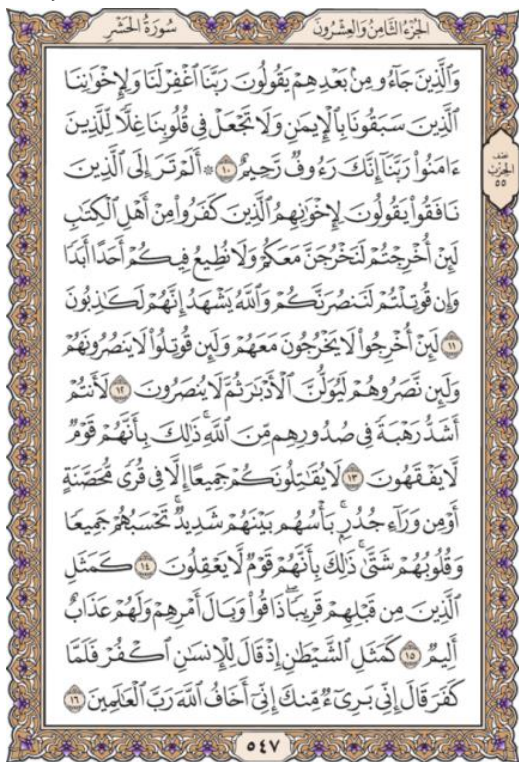 الجزء الثامن والعشرون
سورة الحشر
وَالَّذِينَ جَاءُو مِنۢ بَعْدِهِمْ يَقُولُونَ رَبَّنَا ٱغْفِرْ لَنَا وَلِإِخْوَٰنِنَا
ٱلَّذِينَ سَبَقُونَا بِٱلْإِيمَٰنِ وَلَا تَجْعَلْ فِى قُلُوبِنَا غِلًّا لِّلَّذِينَ
ءَامَنُوا۟ رَبَّنَآ إِنَّكَ رَءُوفٌ رَّحِيمٌ ١٠ ۞ أَلَمْ تَرَ إِلَى ٱلَّذِينَ
نَافَقُوا۟ يَقُولُونَ لِإِخْوَٰنِهِمُ ٱلَّذِينَ كَفَرُوا۟ مِنْ أَهْلِ ٱلْكِتَٰبِ
لَئِنْ أُخْرِجْتُمْ لَنَخْرُجَنَّ مَعَكُمْ وَلَا نُطِيعُ فِيكُمْ أَحَدًا أَبَدًا
وَإِن قُوتِلْتُمْ لَنَنصُرَنَّكُمْ وَٱللَّهُ يَشْهَدُ إِنَّهُمْ لَكَٰذِبُونَ
١١ لَئِنْ أُخْرِجُوا۟ لَا يَخْرُجُونَ مَعَهُمْ وَلَئِن قُوتِلُوا۟ لَا يَنصُرُونَهُمْ
وَلَئِن نَّصَرُوهُمْ لَيُوَلُّنَّ ٱلْأَدْبَٰرَ ثُمَّ لَا يُنصَرُونَ ١٢ لَأَنتُمْ
أَشَدُّ رَهْبَةً فِى صُدُورِهِم مِّنَ ٱللَّهِ ۚ ذَٰلِكَ بِأَنَّهُمْ قَوْمٌ
لَّا يَفْقَهُونَ ١٣ لَا يُقَٰتِلُونَكُمْ جَمِيعًا إِلَّا فِى قُرًى مُّحَصَّنَةٍ
أَوْ مِن وَرَآءِ جُدُرٍۭ ۚ بَأْسُهُم بَيْنَهُمْ شَدِيدٌ ۚ تَحْسَبُهُمْ جَمِيعًا
وَقُلُوبُهُمْ شَتَّىٰ ۚ ذَٰلِكَ بِأَنَّهُمْ قَوْمٌ لَّا يَعْقِلُونَ ١٤ كَمَثَلِ
ٱلَّذِينَ مِن قَبْلِهِمْ قَرِيبًا ۖ ذَاقُوا۟ وَبَالَ أَمْرِهِمْ وَلَهُمْ عَذَابٌ
أَلِيمٌ ١٥ كَمَثَلِ ٱلشَّيْطَٰنِ إِذْ قَالَ لِلْإِنسَٰنِ ٱكْفُرْ فَلَمَّا
كَفَرَ قَالَ إِنِّى بَرِىٓءٌ مِّنكَ إِنِّىٓ أَخَافُ ٱللَّهَ رَبَّ ٱلْعَٰلَمِينَ ١٦
نصف
الحزب
٥٥
٥٤٧